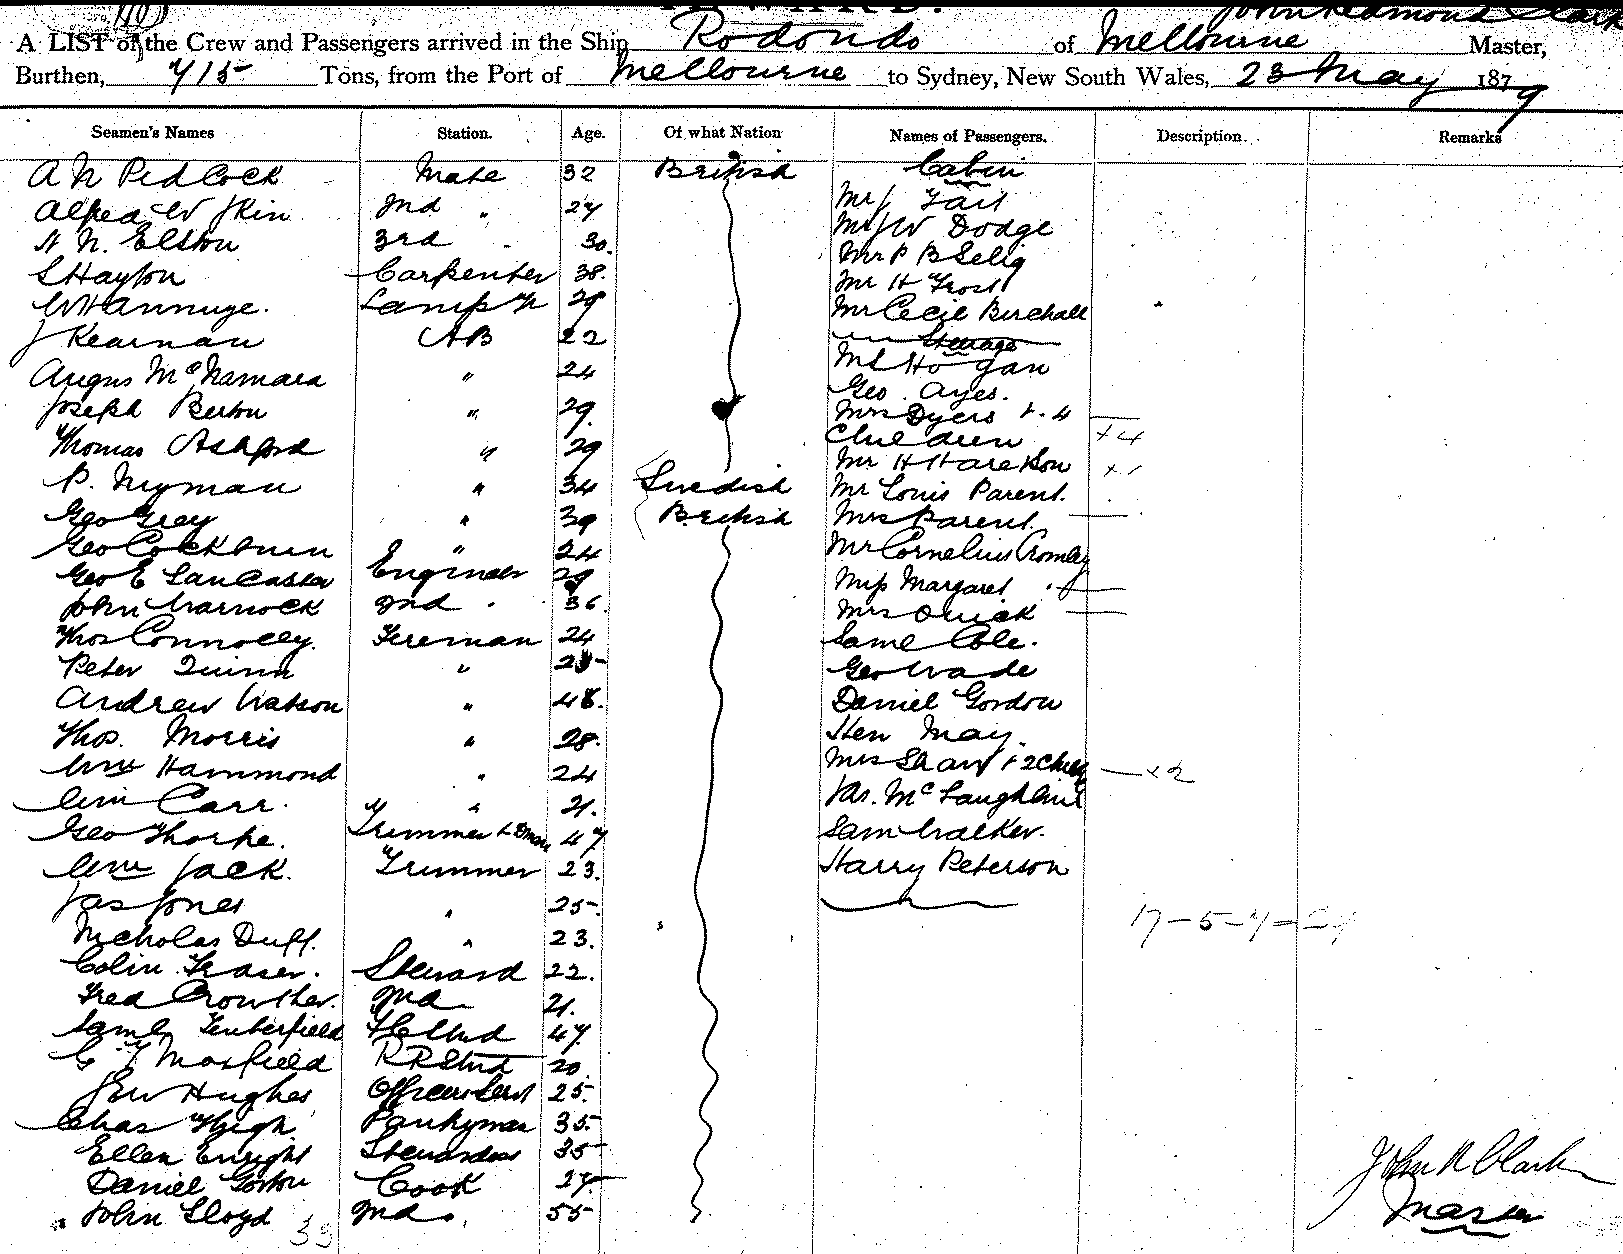 John Redmond Clark
A LIST of the Crew and Passengers arrived in the Ship Rodondo of Melbourne Master,
Burthen, 715 Tons, from the Port of Melbourne to Sydney, New South Wales, 23 May 1879
Seamen's Names Station. Age. Of what Nation Names of Passengers. Description. Remarks
A N Pidcock Mate 32 British Cabin
2nd " 27 Mr J Tait
N. N. Elston 3rd 30. Mr J W Dodge
S Hayton Carpenter 38. Mr P B Selig
Lamp Tr 29 Mr H Frost
J Kearnan AB 22 Mr Cecil Birchall
Steerage
Angus McNamara " 24 Hogan
Joseph Berton " 29. Geo. Ayes.
Thomas Ashford " 29 Mrs Dyers + 4
Children +4
P. Nyman " 34 Swedish Mr H Hare & Son +1
Geo Grey " 39 British Mr Louis Parent.
Geo Cockburn " 24 Mrs Parent
Geo E Lancaster Engineer 29 Mr Cornelius Cromley
John Warnock 2nd " 36. Miss Margaret
Thos Connolly. Fireman 24 Mrs Quick
Peter Quinn " 25 Saml Cole.
Andrew Watson " 48. Geo Wade
Thos. Morris " 28. Daniel Gordon
Wm Hammond " 24 Hen May.
Wm Carr. " 21. Mrs Shaw + 2 Chil +2
Geo Thorpe. Trimmer 47 Jas. McLaughlin
Wm Jack. Trimmer 23. Sam Walker.
Jas Jones " 25. Harry Peterson
Nicholas Duff. " 23. 17-5-7-
Colin Fraser. Steward 22.
Fred Crowther. 2nd 21.
Saml Tenterfield 47.
C T Maxfield 20
Hughes Officers Servt 25.
Chas High. Pantryman 35.
Ellen Enright Stewardess 35
Daniel Gorton Cook 27
John Lloyd 2nd " 55
33
John R Clark
Master